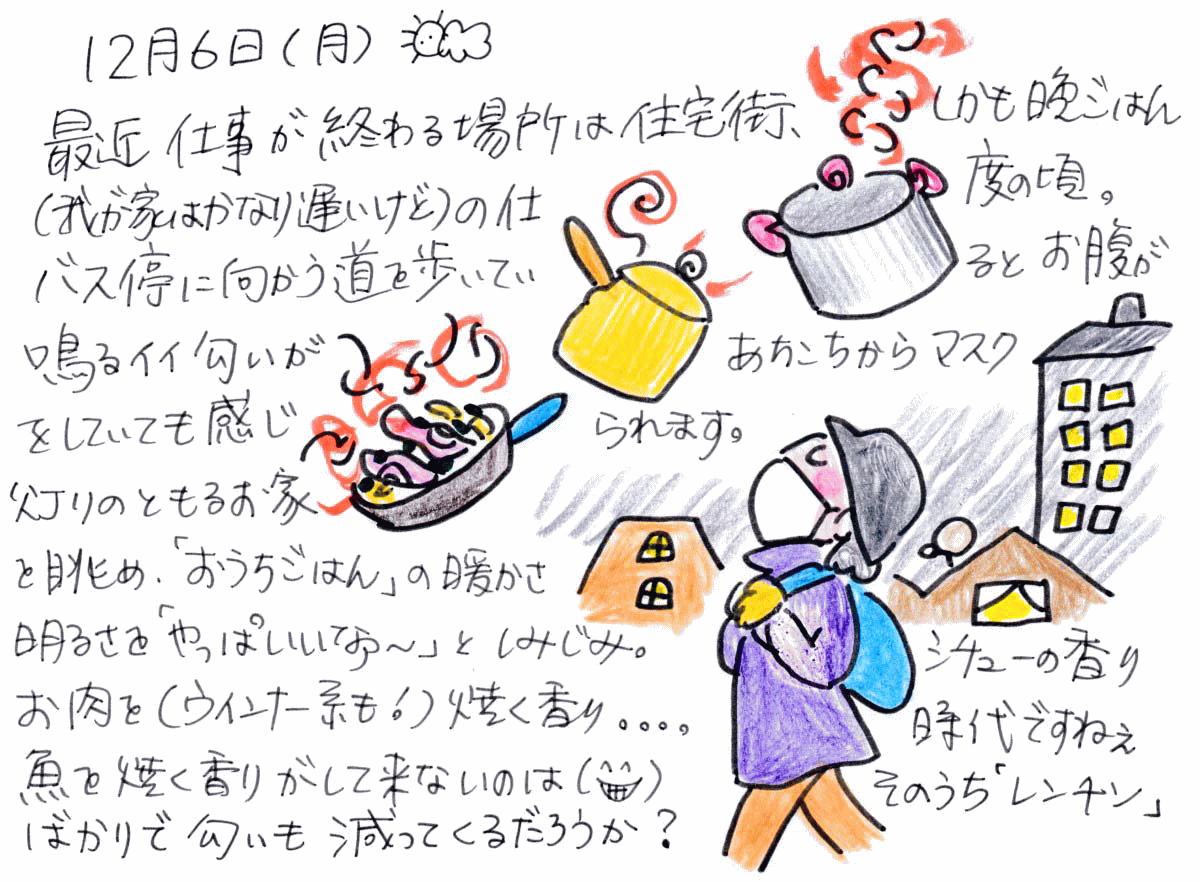 12月6日(月)
最近 仕事が終わる場所は住宅街、しかも晩ごはん
(我が家はかなり遅いけど)の仕度の頃。
バス停に向かう道を歩いているとお腹が
鳴るイイ匂いがあちこちからマスク
をしていても感じられます。
灯りのともるお家
を眺め、「おうちごはん」の暖かさ
明るさを「やっぱいいなあ〜」としみじみ。
シチューの香り
お肉を(ウインナー系も!)焼く香り。。。。
魚を焼く香りがして来ないのは(😁)時代ですねぇ
そのうち「レンチン」
ばかりで匂いも減ってくるだろうか?